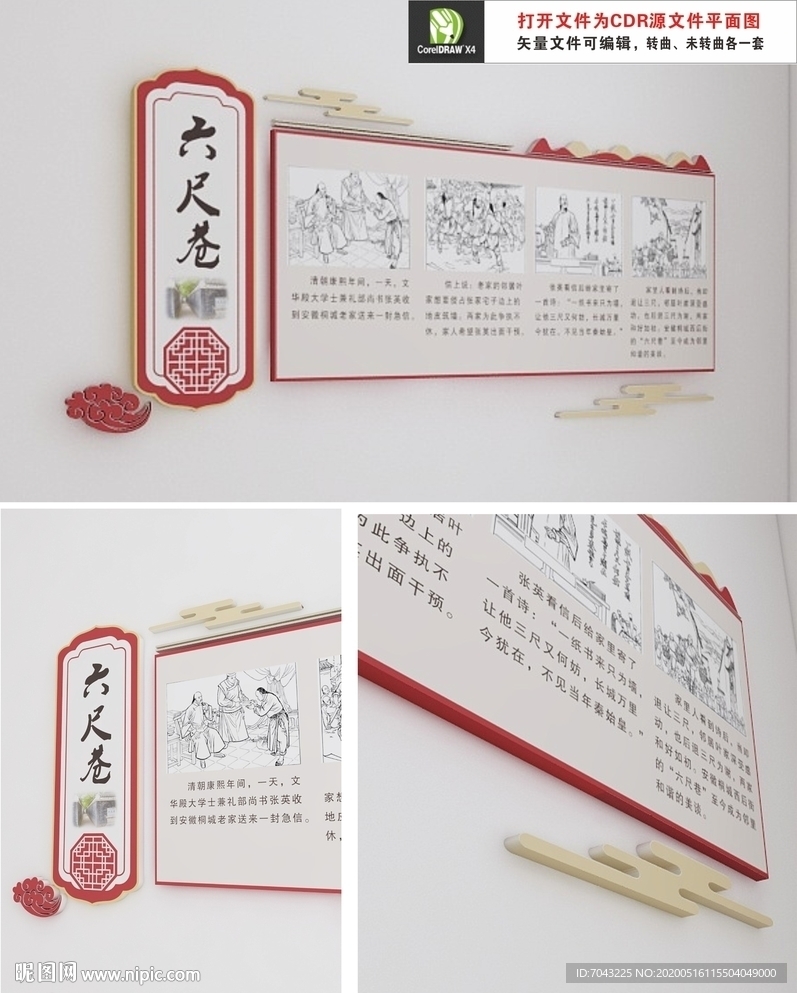 CorelDRAW X4
打开文件为CDR源文件平面图
矢量文件可编辑，转曲、未转曲各一套
六尺巷
清朝康熙年间，一天，文
华殿大学士兼礼部尚书张英收
到安徽桐城老家送来一封急信。
信上说：老家的邻居叶
地盘筑墙；两家为此争执不
休，家人希望张英出面干预。
张英看信后给家里寄了
一首诗：“一纸书来只为墙，
让他三尺又何妨，长城万里
今犹在，不见当年秦始皇。”
退让三尺，邻居叶家深受感
动，也后退三尺为谢，两家
和好如初。安徽桐城西后街
的“六尺巷”至今成为邻里
和谐的美谈。
六尺巷
清朝康熙年间，一天，文
华殿大学士兼礼部尚书张英收
到安徽桐城老家送来一封急信。
家想
地盘
休，
居叶
边上的
为此争执不
出面干预。
张英看信后给家里寄了
一首诗：“一纸书来只为墙，
让他三尺又何妨，长城万里
今犹在，不见当年秦始皇。”
退让三尺，邻居叶家深受感
动，也后退三尺为谢，两家
和好如初。安徽桐城西后街
的“六尺巷”至今成为邻里
和谐的美谈。
昵图网 www.nipic.com
ID:7043225 NO:20200516115504049000